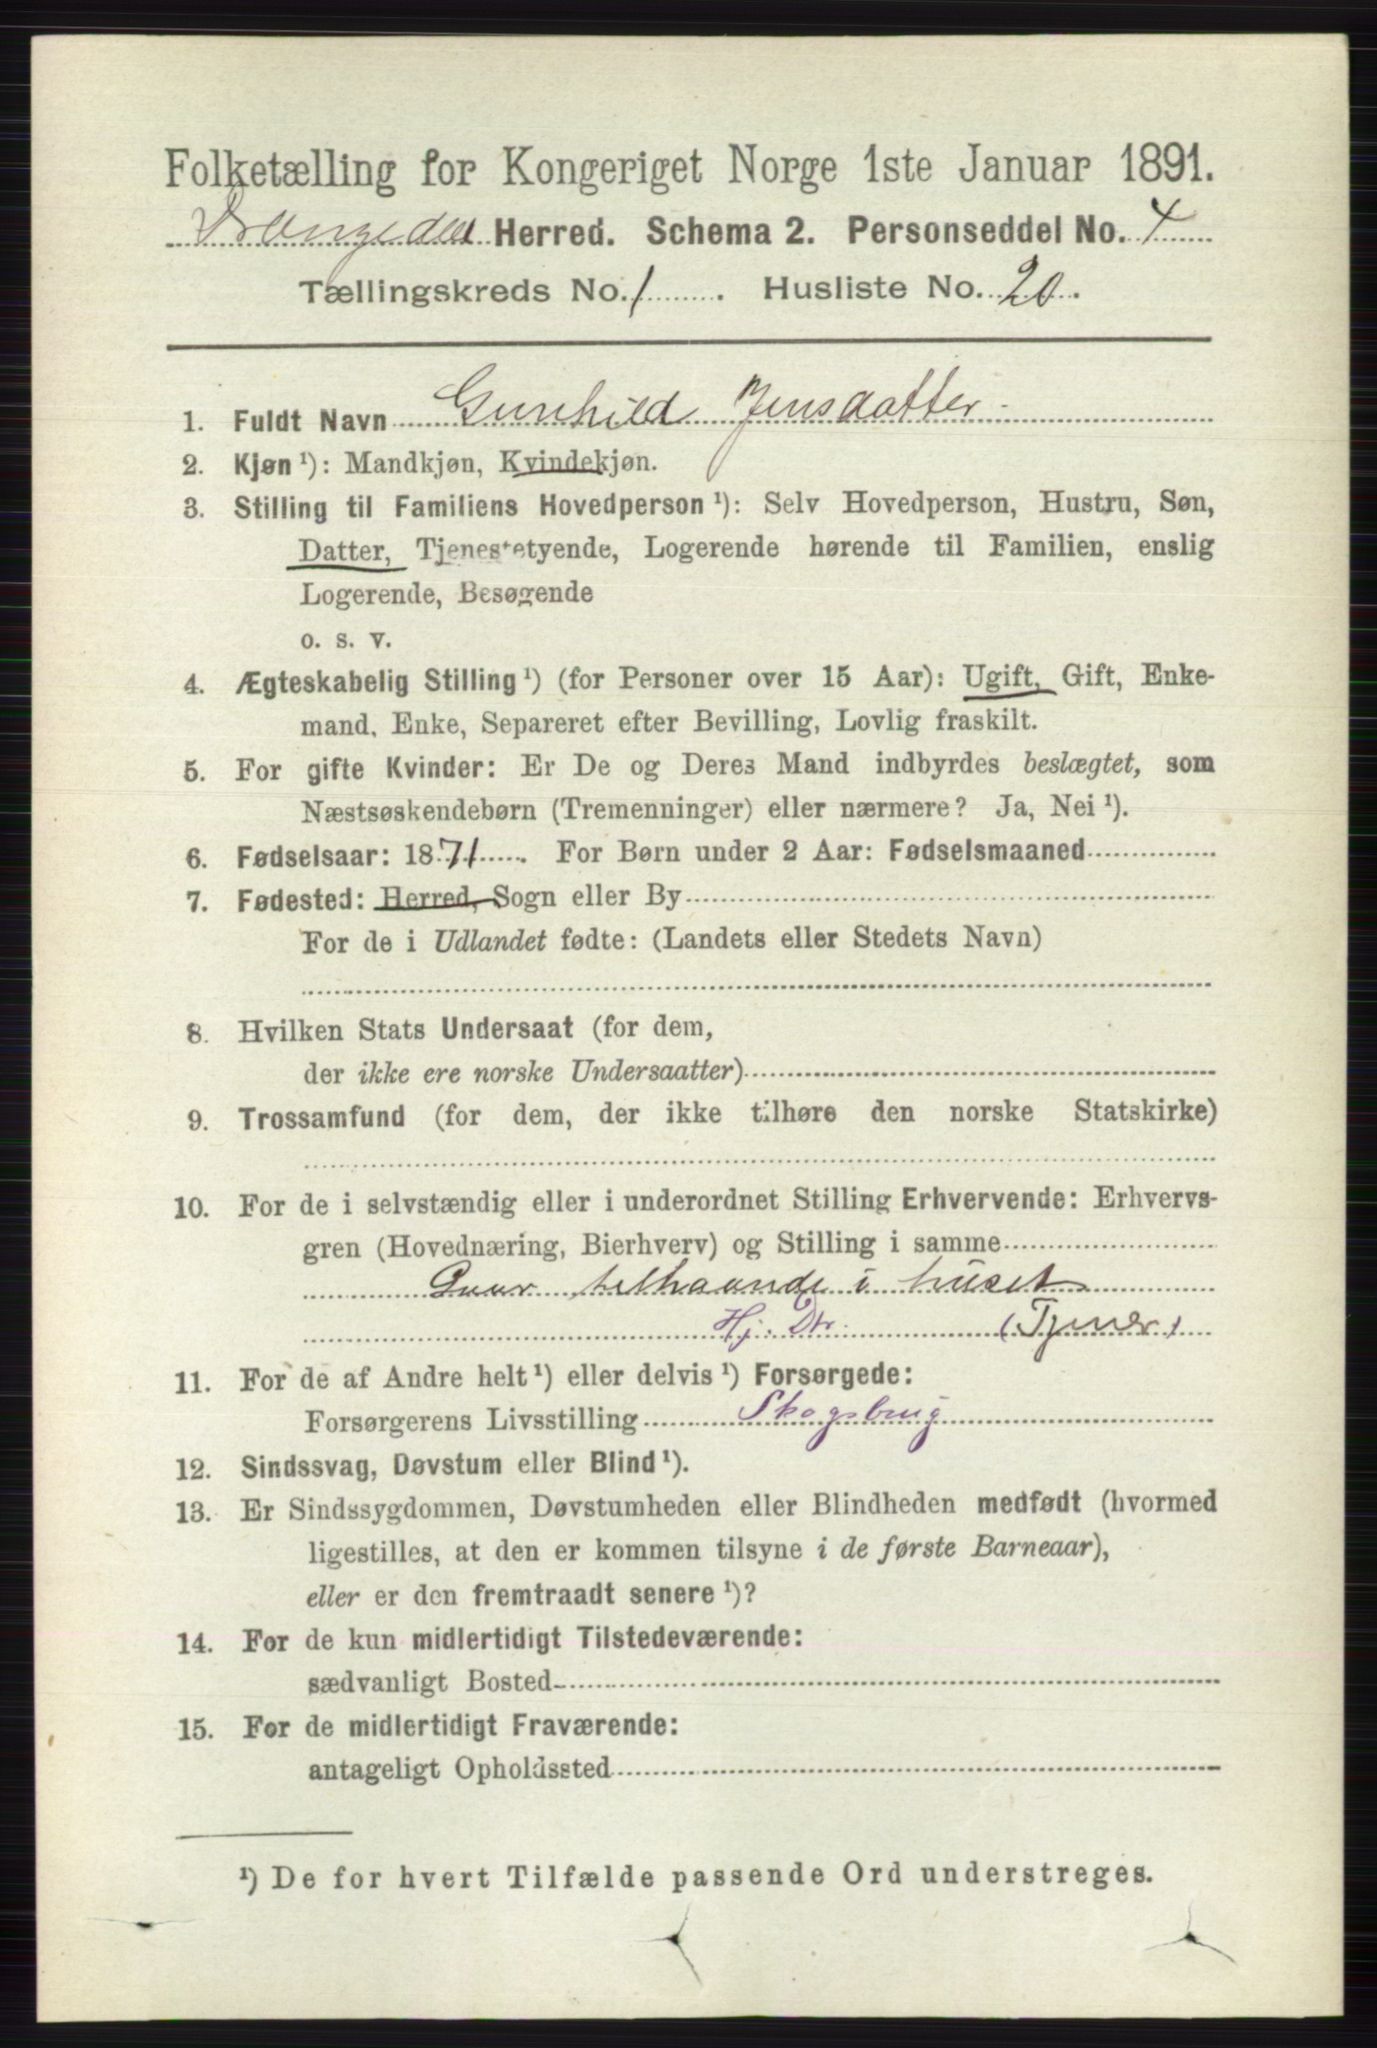 Folketælling for Kongeriget Norge 1ste Januar 1891.
Drangedal Herred. Schema 2. Personseddel No. 4
Tællingskreds No. 1. Husliste No. 20.
1. Fuldt Navn Gunhild Jensdatter
2. Kjøn ¹): Mandkjøn, Kvindekjøn.
3. Stilling til Familiens Hovedperson ¹): Selv Hovedperson, Hustru, Søn,
Datter, Tjenestetyende, Logerende hørende til Familien, enslig
Logerende, Besøgende
o. s. v.
4. Ægteskabelig Stilling ¹) (for Personer over 15 Aar): Ugift, Gift, Enke-
mand, Enke, Separeret efter Bevilling, Lovlig fraskilt.
5. For gifte Kvinder: Er De og Deres Mand indbyrdes beslægtet, som
Næstsøskendebørn (Tremenninger) eller nærmere? Ja, Nei ¹).
6. Fødselsaar: 1871. For Børn under 2 Aar: Fødselsmaaned
7. Fødested: Herred, Sogn eller By
For de i Udlandet fødte: (Landets eller Stedets Navn)
8. Hvilken Stats Undersaat (for dem,
der ikke ere norske Undersaatter)
9. Trossamfund (for dem, der ikke tilhøre den norske Statskirke)
10. For de i selvstændig eller i underordnet Stilling Erhvervende: Erhvervs-
gren (Hovednæring, Bierhverv) og Stilling i samme
Gaar tilhaande i huset
Hj. Dtr. (Tjener)
11. For de af Andre helt ¹) eller delvis ¹) Forsørgede:
Forsørgerens Livsstilling Skogsbrug
12. Sindssvag, Døvstum eller Blind ¹).
13. Er Sindssygdommen, Døvstumheden eller Blindheden medfødt (hvormed
ligestilles, at den er kommen tilsyne i de første Barneaar),
eller er den fremtraadt senere ¹)?
14. For de kun midlertidigt Tilstedeværende:
sædvanligt Bosted
15. For de midlertidigt Fraværende:
antageligt Opholdssted
¹) De for hvert Tilfælde passende Ord understreges.